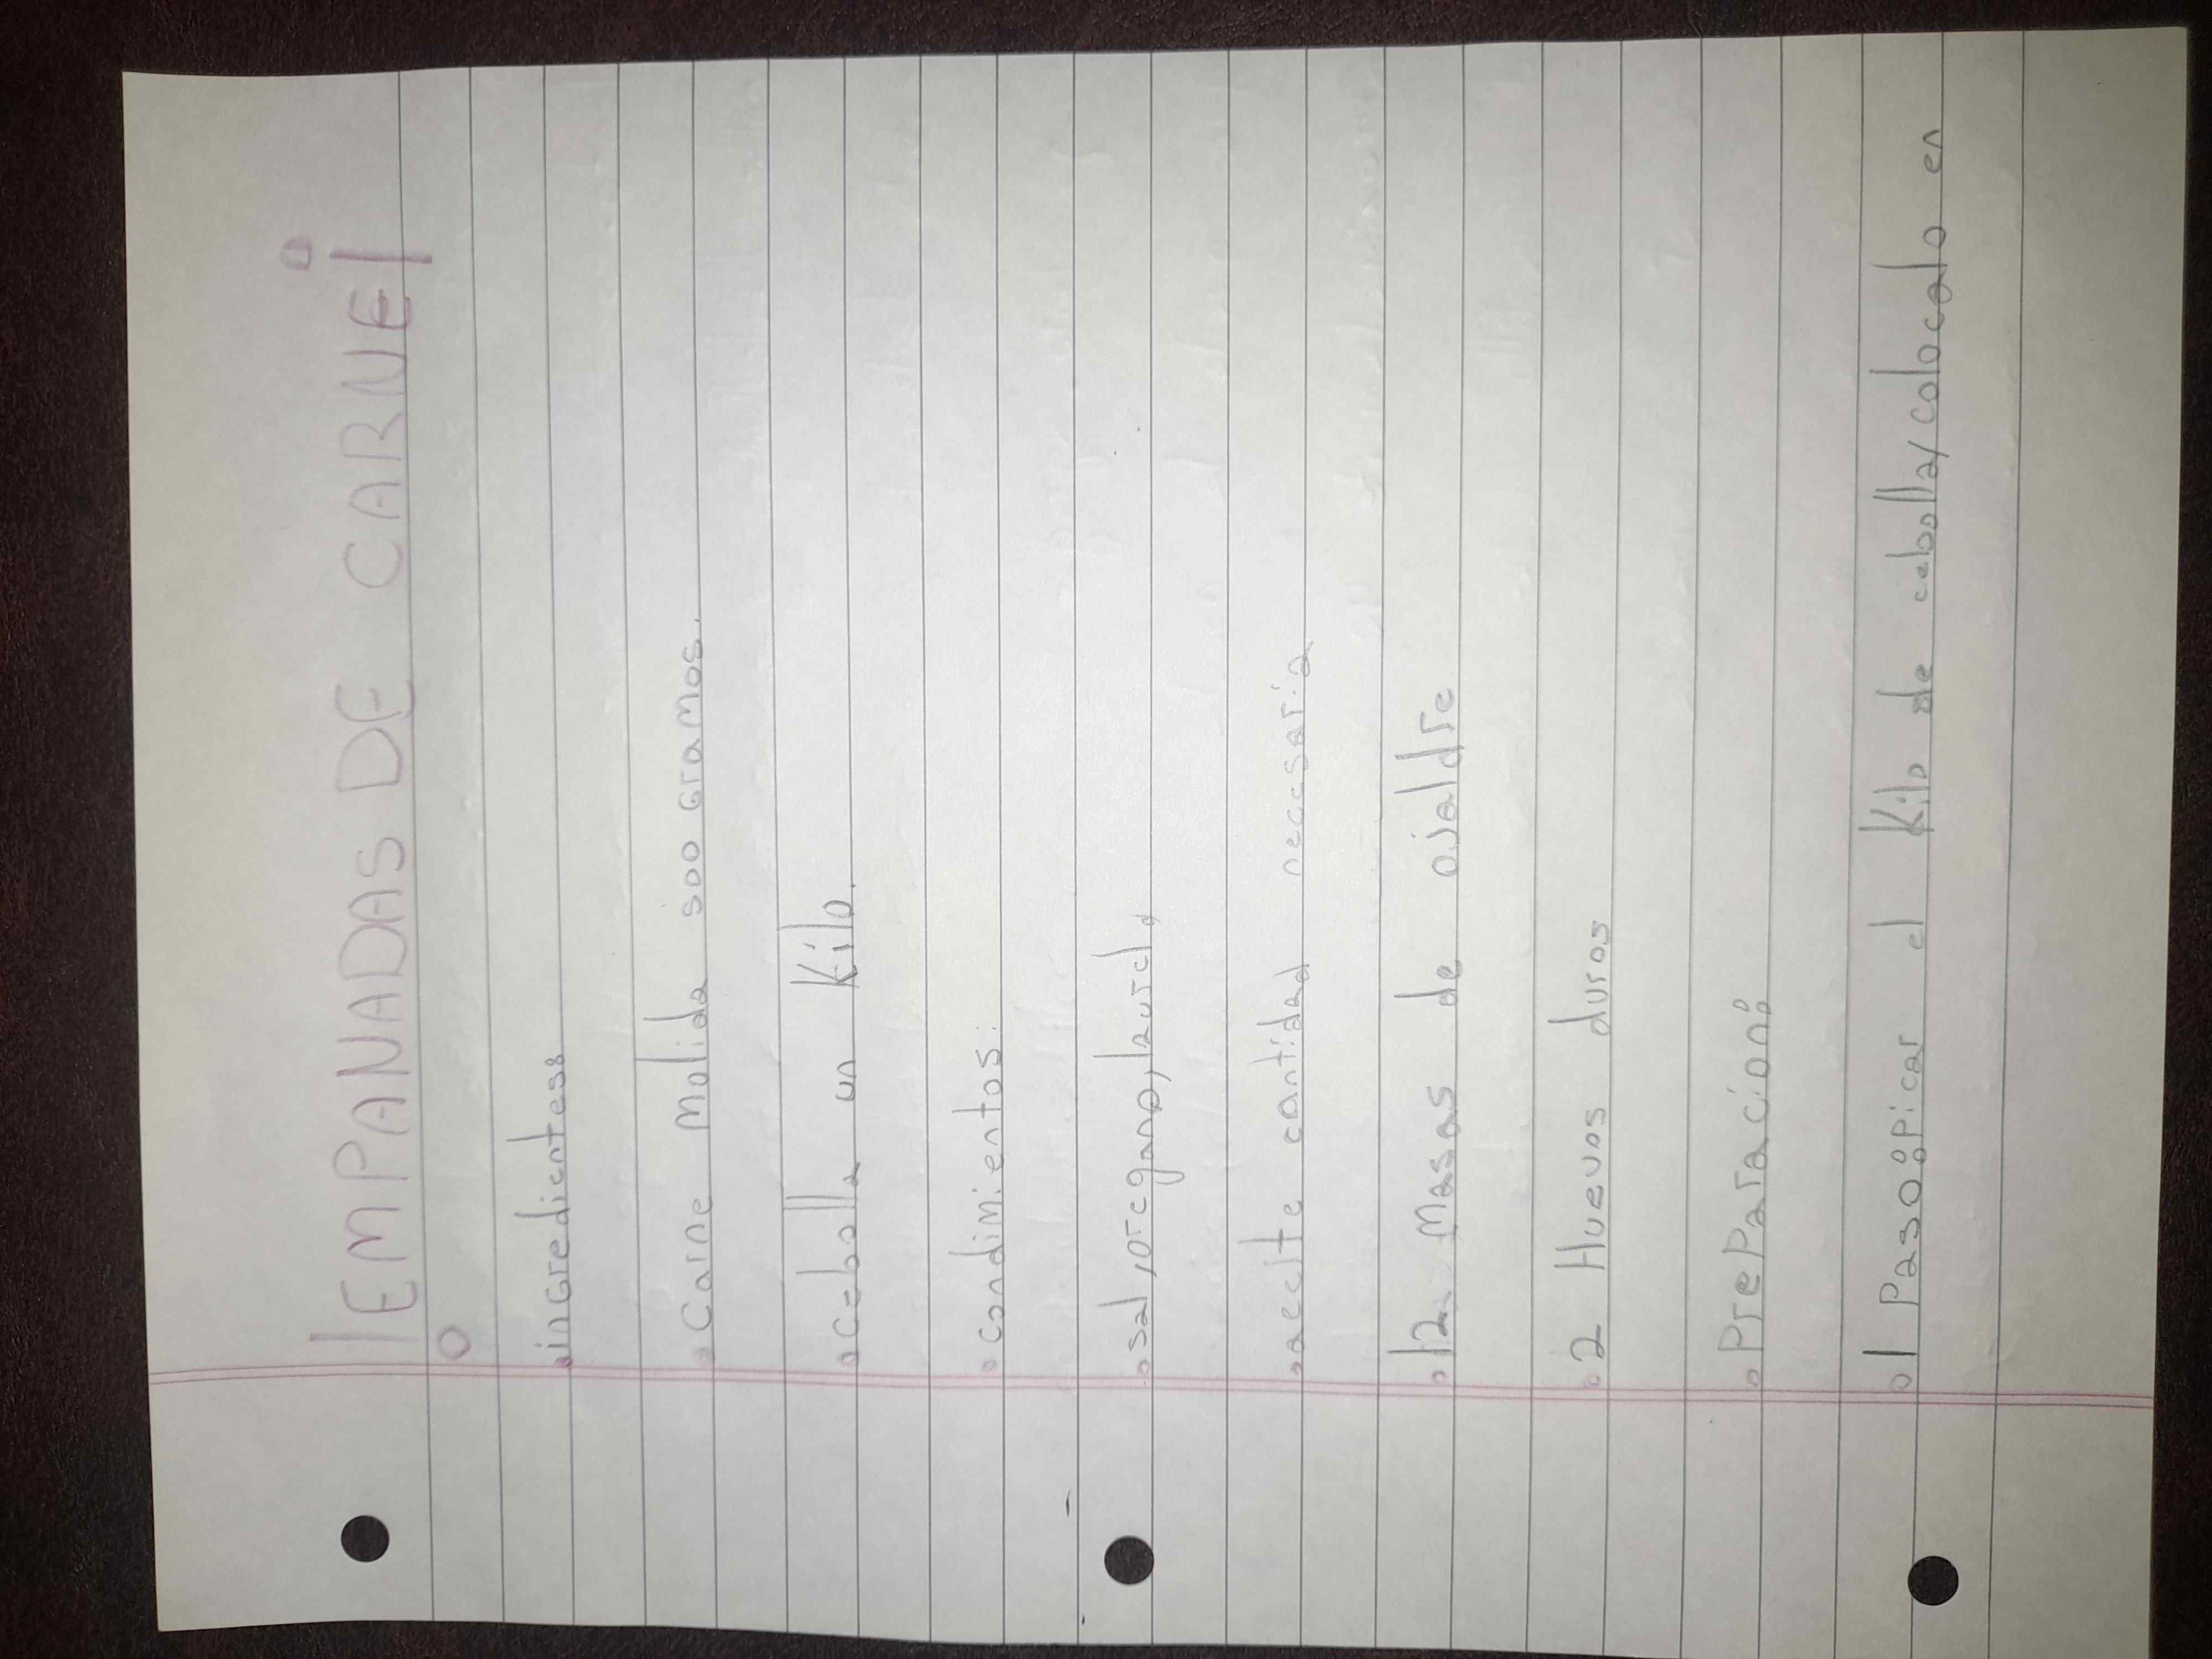 ¡EMPANADAS DE CARNE!
• inGredientes:
• Carne Molida 500 Gramos.
• Cebolla un Kilo.
• condimientos:
• sal, oregano, laurel,
• aceite cantidad necesaria
• 12 Masas de ojaldre
• 2 Huevos duros
• PreParacion:
• 1 Paso: Picar el Kilo de cebolla, colocalo en